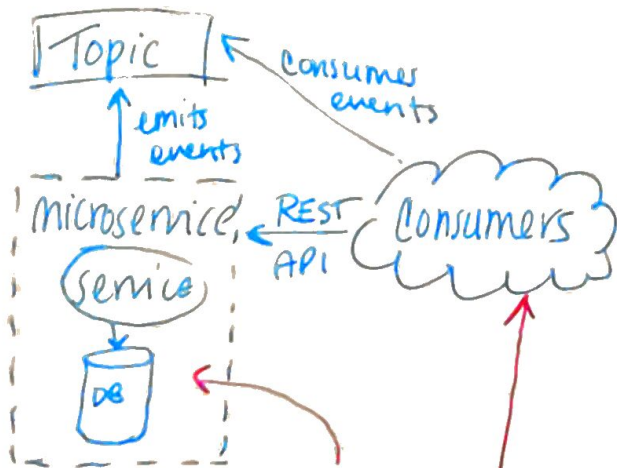 Topic
consumes
events
emits
events
microservice
REST
API
Consumers
service
DB